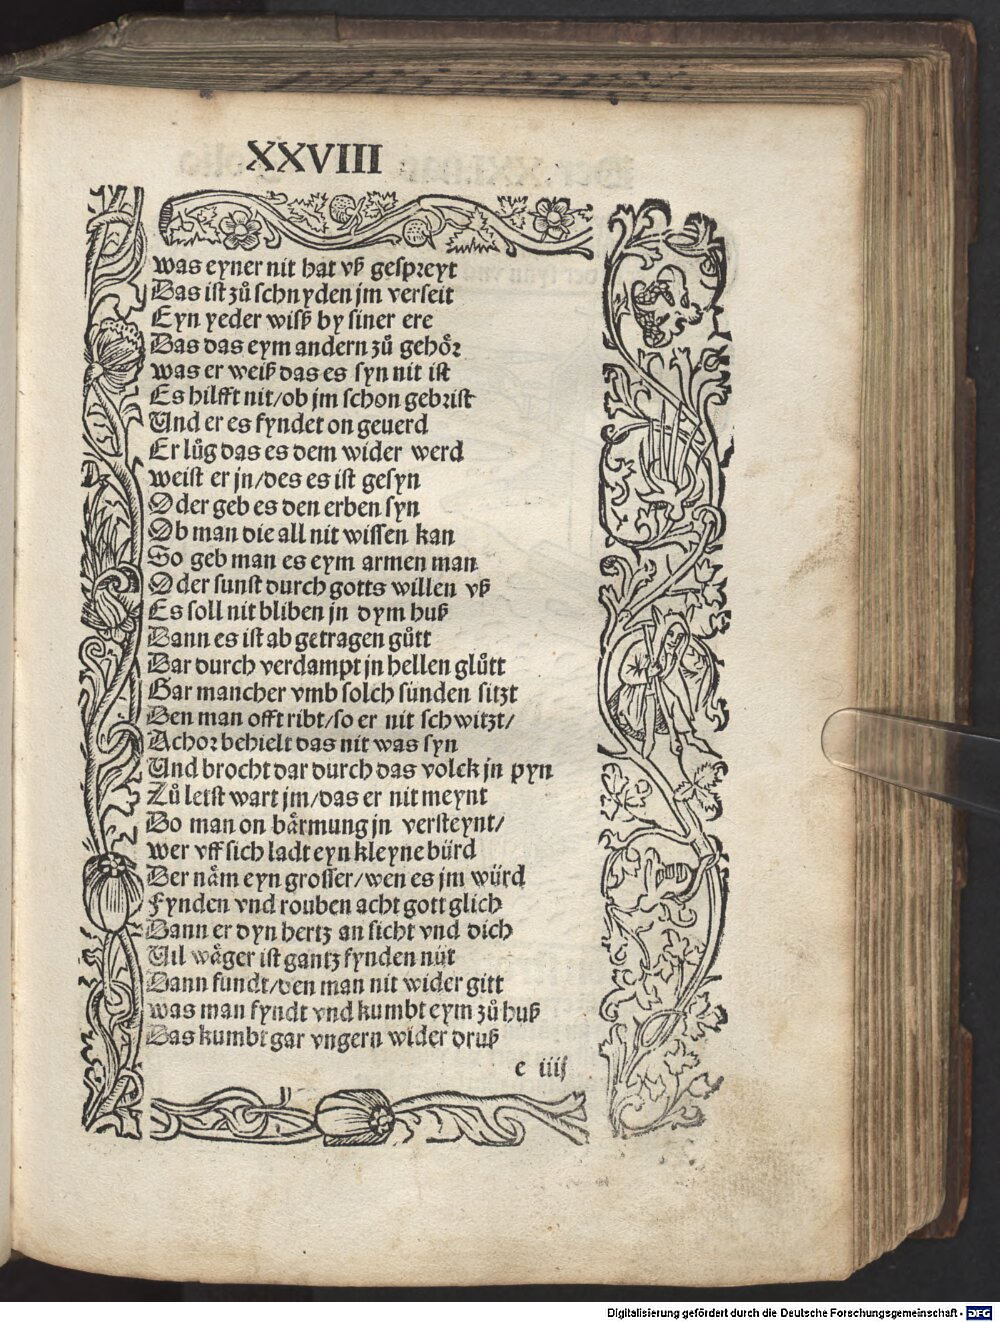 XXVIII
was eyner nit hat vß gespreyt
Das ist zuͦ schnyden jm verseit
Eyn yeder wisß by siner ere
Das das eym andern zuͦ gehoͤr
was er weiß das es syn nit ist
Es hilfft nit/ob jm schon gebrist
Und er es fyndet on geuerd
Er luͤg das es dem wider werd
weist er jn/des es ist gesyn
Oder geb es den erben syn
Ob man die all nit wissen kan
So geb man es eym armen man
Oder sunst durch gotts willen vß
Es soll nit bliben jn dym huß
Dann es ist ab getragen guͤtt
Dar durch verdampt jn hellen gluͤtt
Gar mancher vmb solch sünden sitzt
Den man offt ribt/so er nit schwitzt/
Achor behielt das nit was syn
Und brocht dar durch das volck jn pyn
Zuͦ letst wart jm/das er nit meynt
Do man on baͤrmung jn versteynt/
wer vff sich ladt eyn kleyne bürd
Der naͤm eyn grosser/wen es jm würd
Fynden vnd rouben acht gott glich
Dann er dyn hertz an sicht vnd dich
Vil waͤger ist gantz fynden nüt
Dann fundt/den man nit wider gitt
was man fyndt vnd kumbt eym zuͦ huß
Das kumbt gar vngern wider druß
e iiij
Digitalisierung gefördert durch die Deutsche Forschungsgemeinschaft - DFG